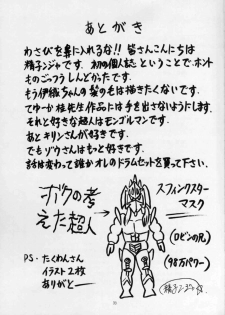 あとがき
わさびを鼻に入れるな!! 皆さんこんにちは
精子ンジャです. 初の個人誌ということで、ホント
ものごっつうしんどかったです.
もう伊織ちゃんの髪の毛は描きたくないです.
てゆーか桂先生作品には手を出さないようにします.
それと好きな超人はモンゴルマンです.
あとキリンさんが好きです.
でもゾウさんはもっと好きです.
話は変わって誰かオレのドラムセットを買って下さい.
ボクの考
えた超人
スフィンクスター
マスク
(ロビンの兄)
(98万パワー)
PS・たくわんさん
イラスト2枚
ありがとー
(精子ンジャ)